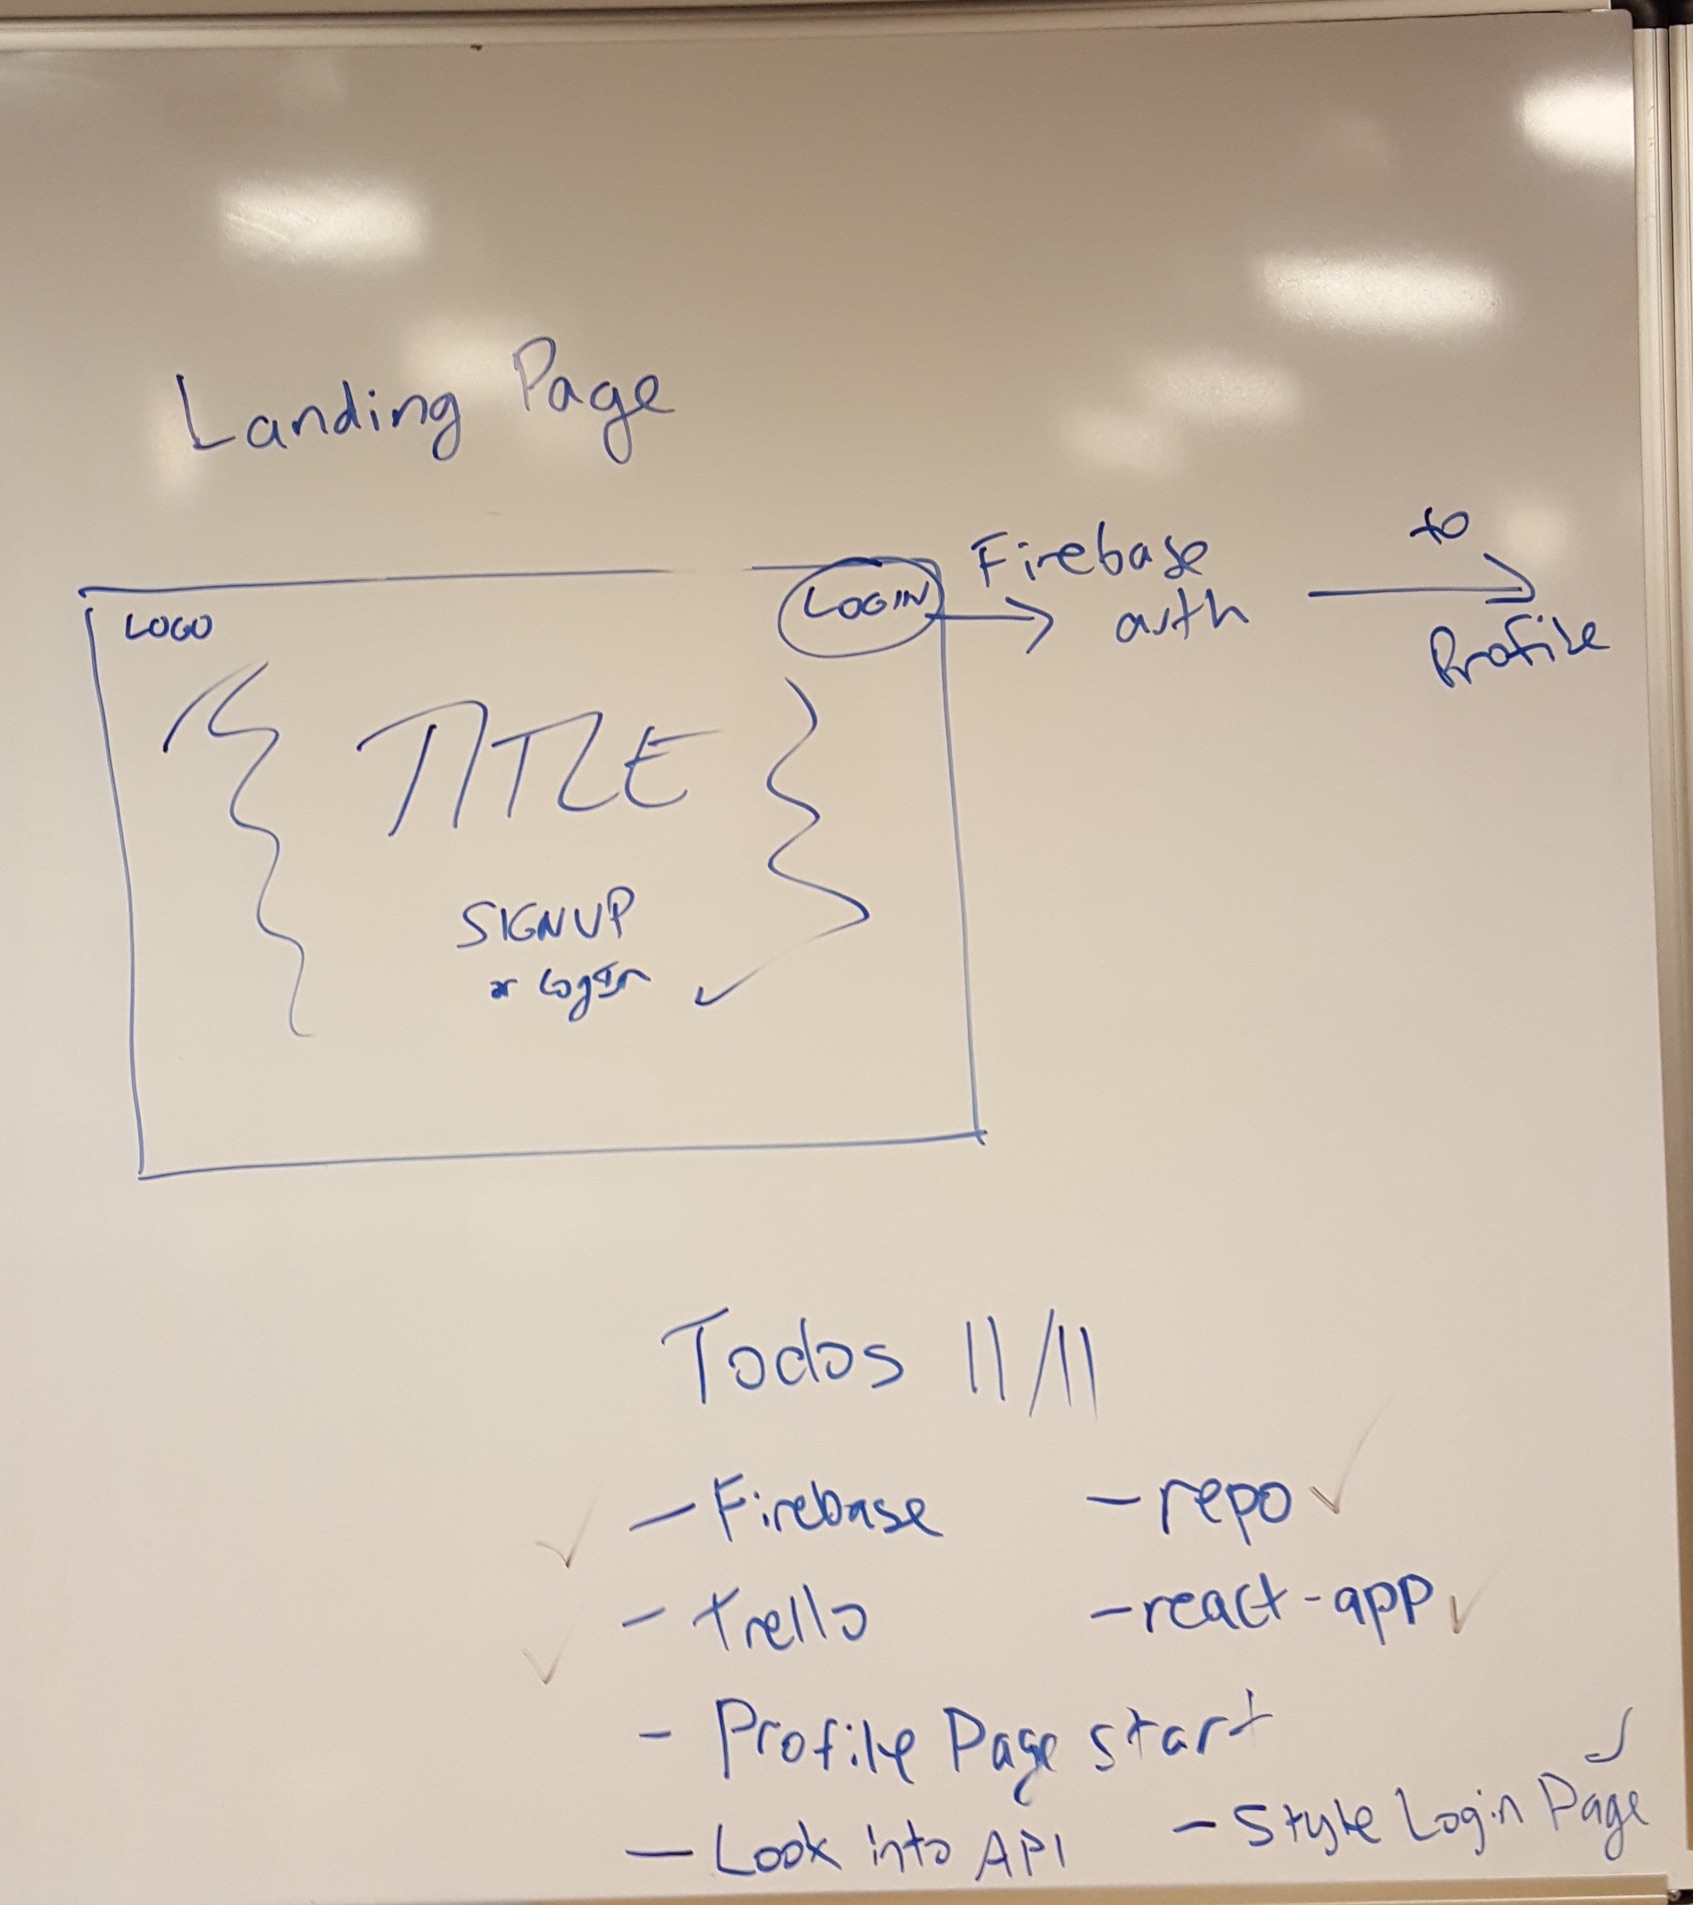 Landing Page
LOGO
LOGIN
Firebase
auth
to
Profile
TITLE
SIGNUP
or Login
Todos 11/11
- Firebase
- repo ✓
- Trello
- react-app ✓
- Profile Page start
- Look into API
- Style Login Page